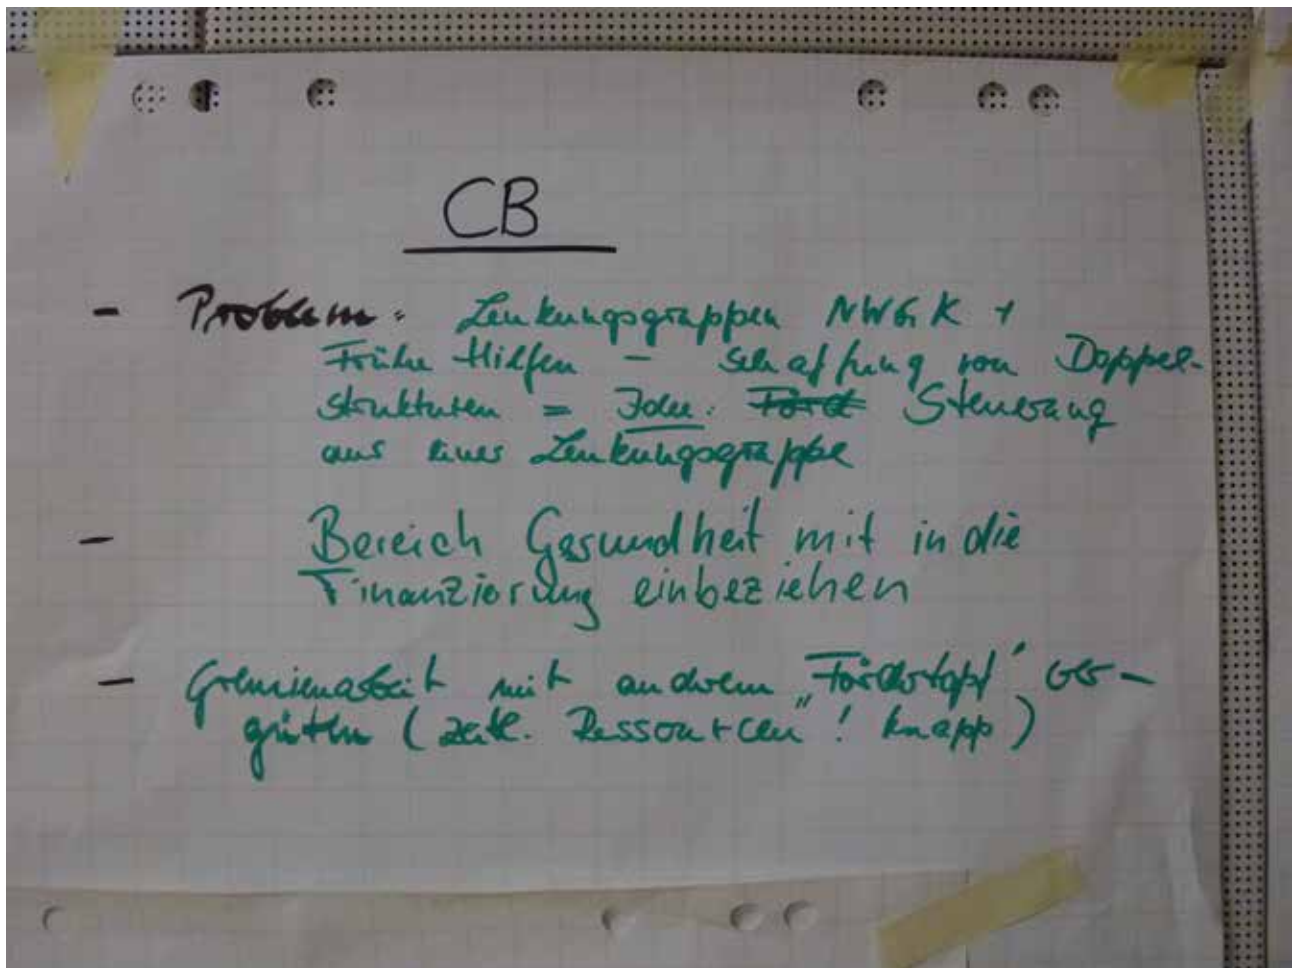 CB
- Problem: Lenkungsgruppen NWGK +
Frühe Hilfen - Schaffung von Doppel-
strukturen = Idee: Steuerung
aus einer Lenkungsgruppe
- Bereich Gesundheit mit in die
Finanzierung einbeziehen
- Gremienarbeit mit anderem „Fördertopf" ver-
güten (zeitl. Ressourcen"! knapp)